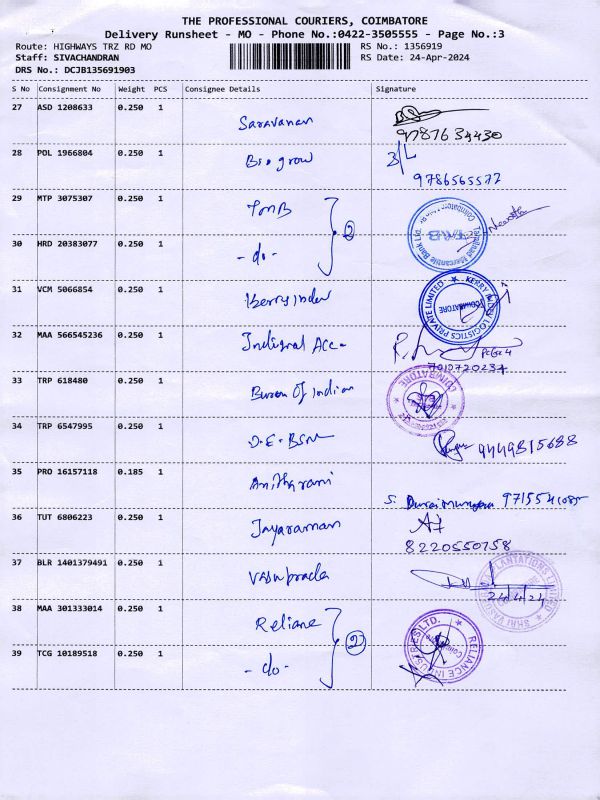 THE PROFESSIONAL COURIERS, COIMBATORE
Delivery Runsheet - MO - Phone No.:0422-3505555 - Page No.:3
Route: HIGHWAYS TRZ RD MO RS No.: 1356919
Staff: SIVACHANDRAN RS Date: 24-Apr-2024
DRS No.: DCJB135691903
S No Consignment No Weight PCS Consignee Details Signature
27 ASD 1208633 0.250 1 Saravanan
9787634430
28 POL 1966804 0.250 1 Bio grow
9786565572
29 MTP 3075307 0.250 1 TMB 2
30 HRD 20383077 0.250 1 - do -
31 VCM 5066854 0.250 1 Kerry Indev
KERRY INDEV LOGISTICS PRIVATE LIMITED
COIMBATORE
32 MAA 566545236 0.250 1 Indigral Acc-
7010720237
33 TRP 618480 0.250 1 Of Indian
COIMBATORE
34 TRP 6547995 0.250 1 D.E. BSNL
9449815688
35 PRO 16157118 0.185 1 Anitharani
S.
36 TUT 6806223 0.250 1 Jayaraman
8220550758
37 BLR 1401379491 0.250 1
24/4/24
38 MAA 301333014 0.250 1 Reliane 2
RELIANCE INDUSTRIES LTD.
39 TCG 10189518 0.250 1 - do -